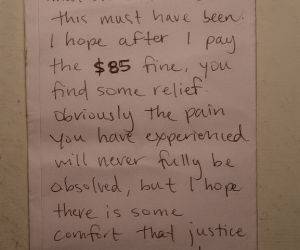 this must have been.
I hope after I pay
the $85 fine, you
find some relief.
Obviously the pain
you have experienced
will never fully be
absolved, but I hope
there is some
comfort that justice